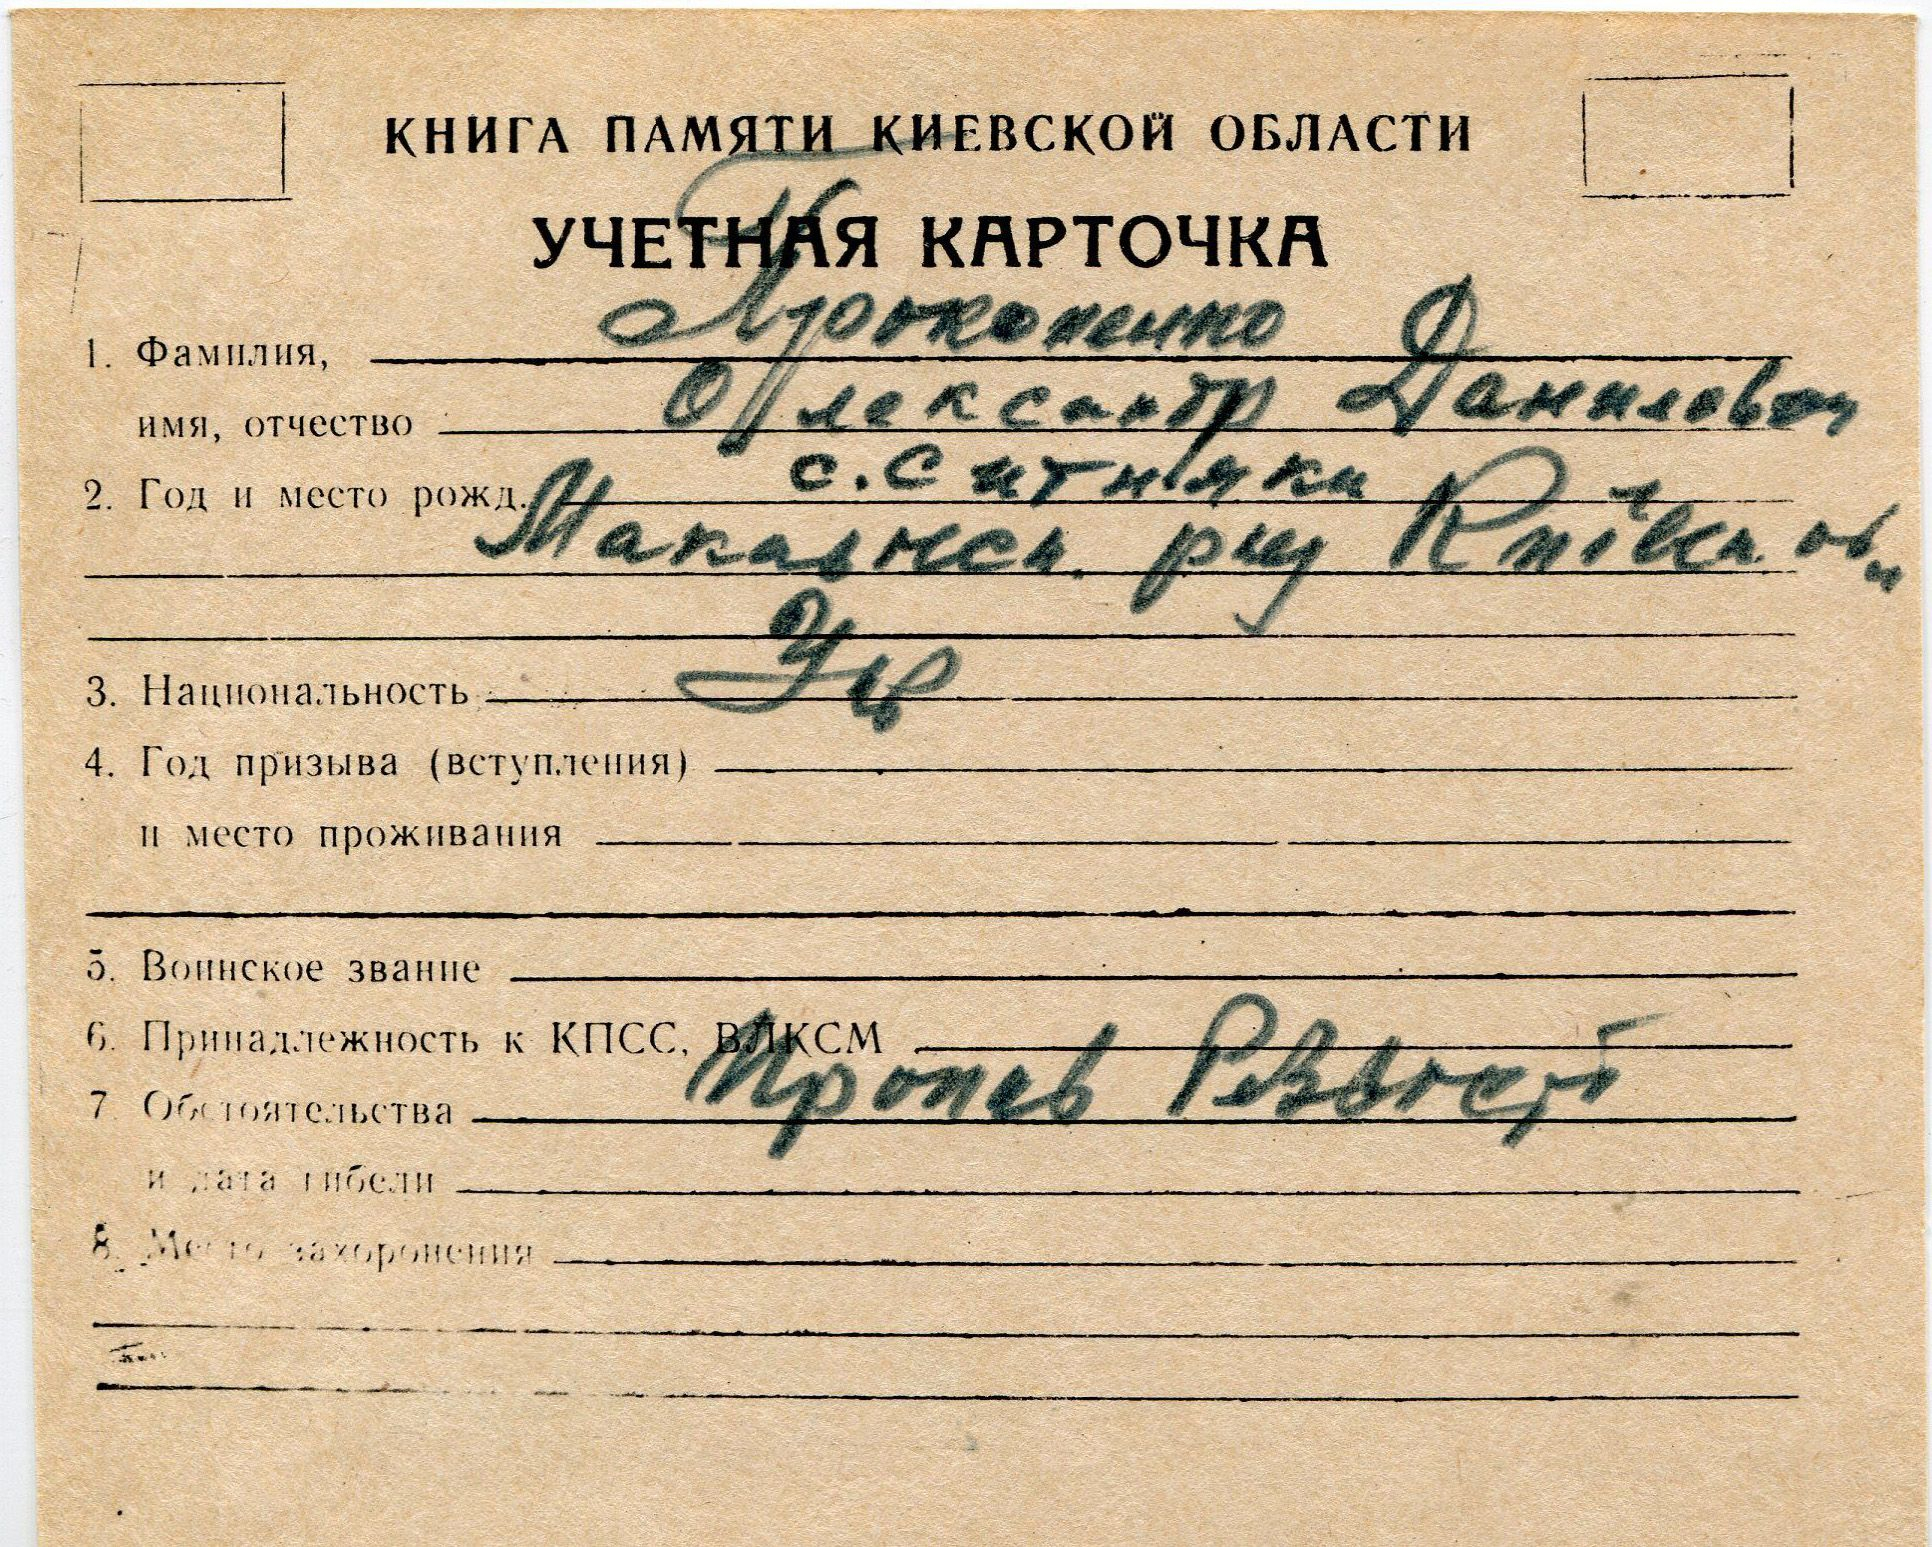 КНИГА ПАМЯТИ КИЕВСКОЙ ОБЛАСТИ
УЧЕТНАЯ КАРТОЧКА
1. Фамилия, Прокопенко
имя, отчество Олександр Данилович
2. Год и место рожд. с. Ситняки
Макарівськ. р-ну Київськ. обл
3. Национальность Укр
4. Год призыва (вступления)
и место проживания
5. Воинское звание
6. Принадлежность к КПСС, ВЛКСМ
7. Обстоятельства Пропав
и дата гибели
8. Место захоронения